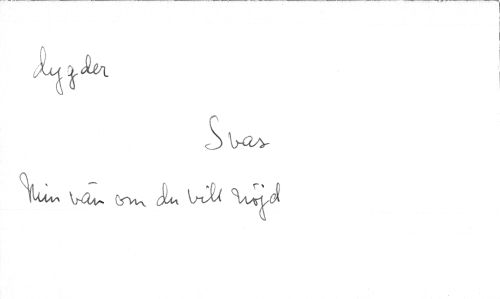 dygder
Svar
Min vän om du vill nöjd